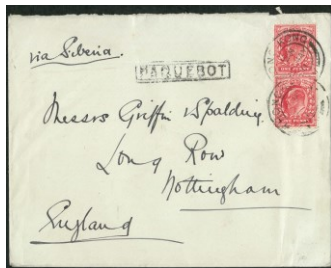 via Siberia.
PAQUEBOT
Messrs Griffin & Spalding,
Long Row
Nottingham
England